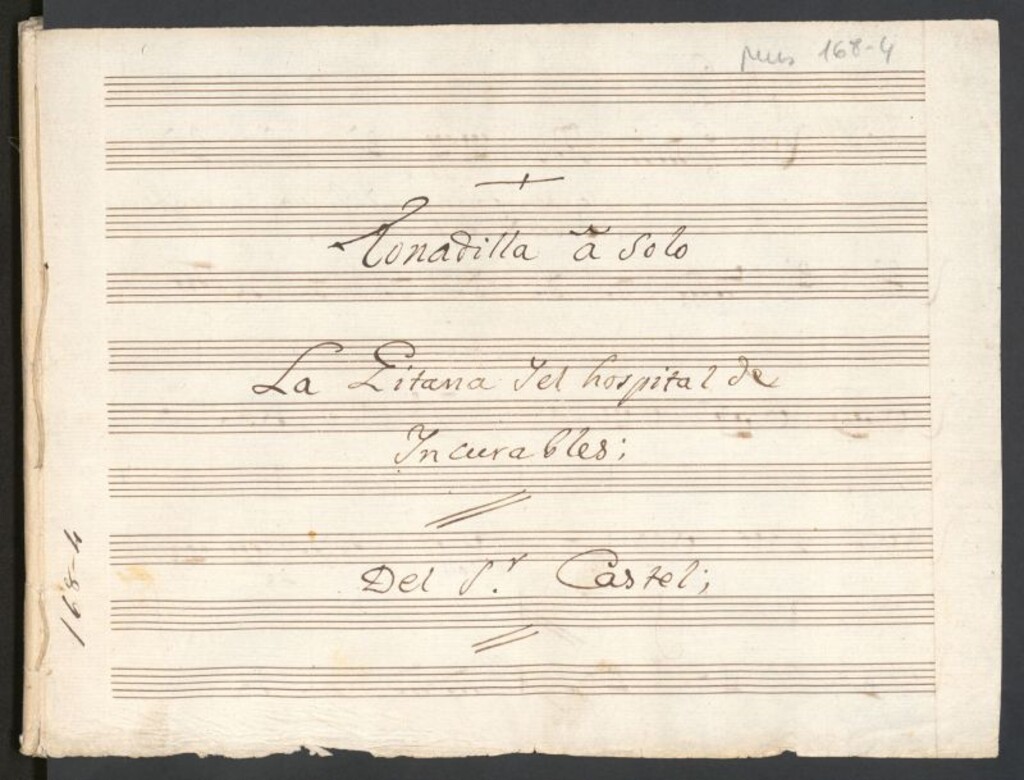 mus 168-4
Tonadilla â Solo
La Gitana del hospital de
Incurables;
Del S.r Castel;
168-4